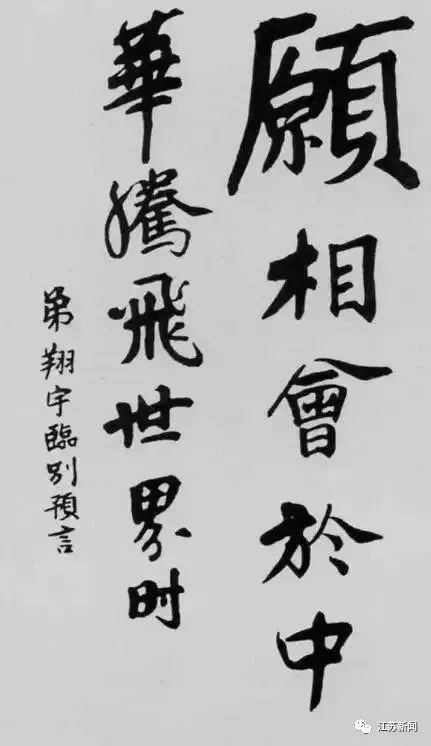 願相會於中
華騰飛世界时
弟翔宇臨别預言
江苏新闻